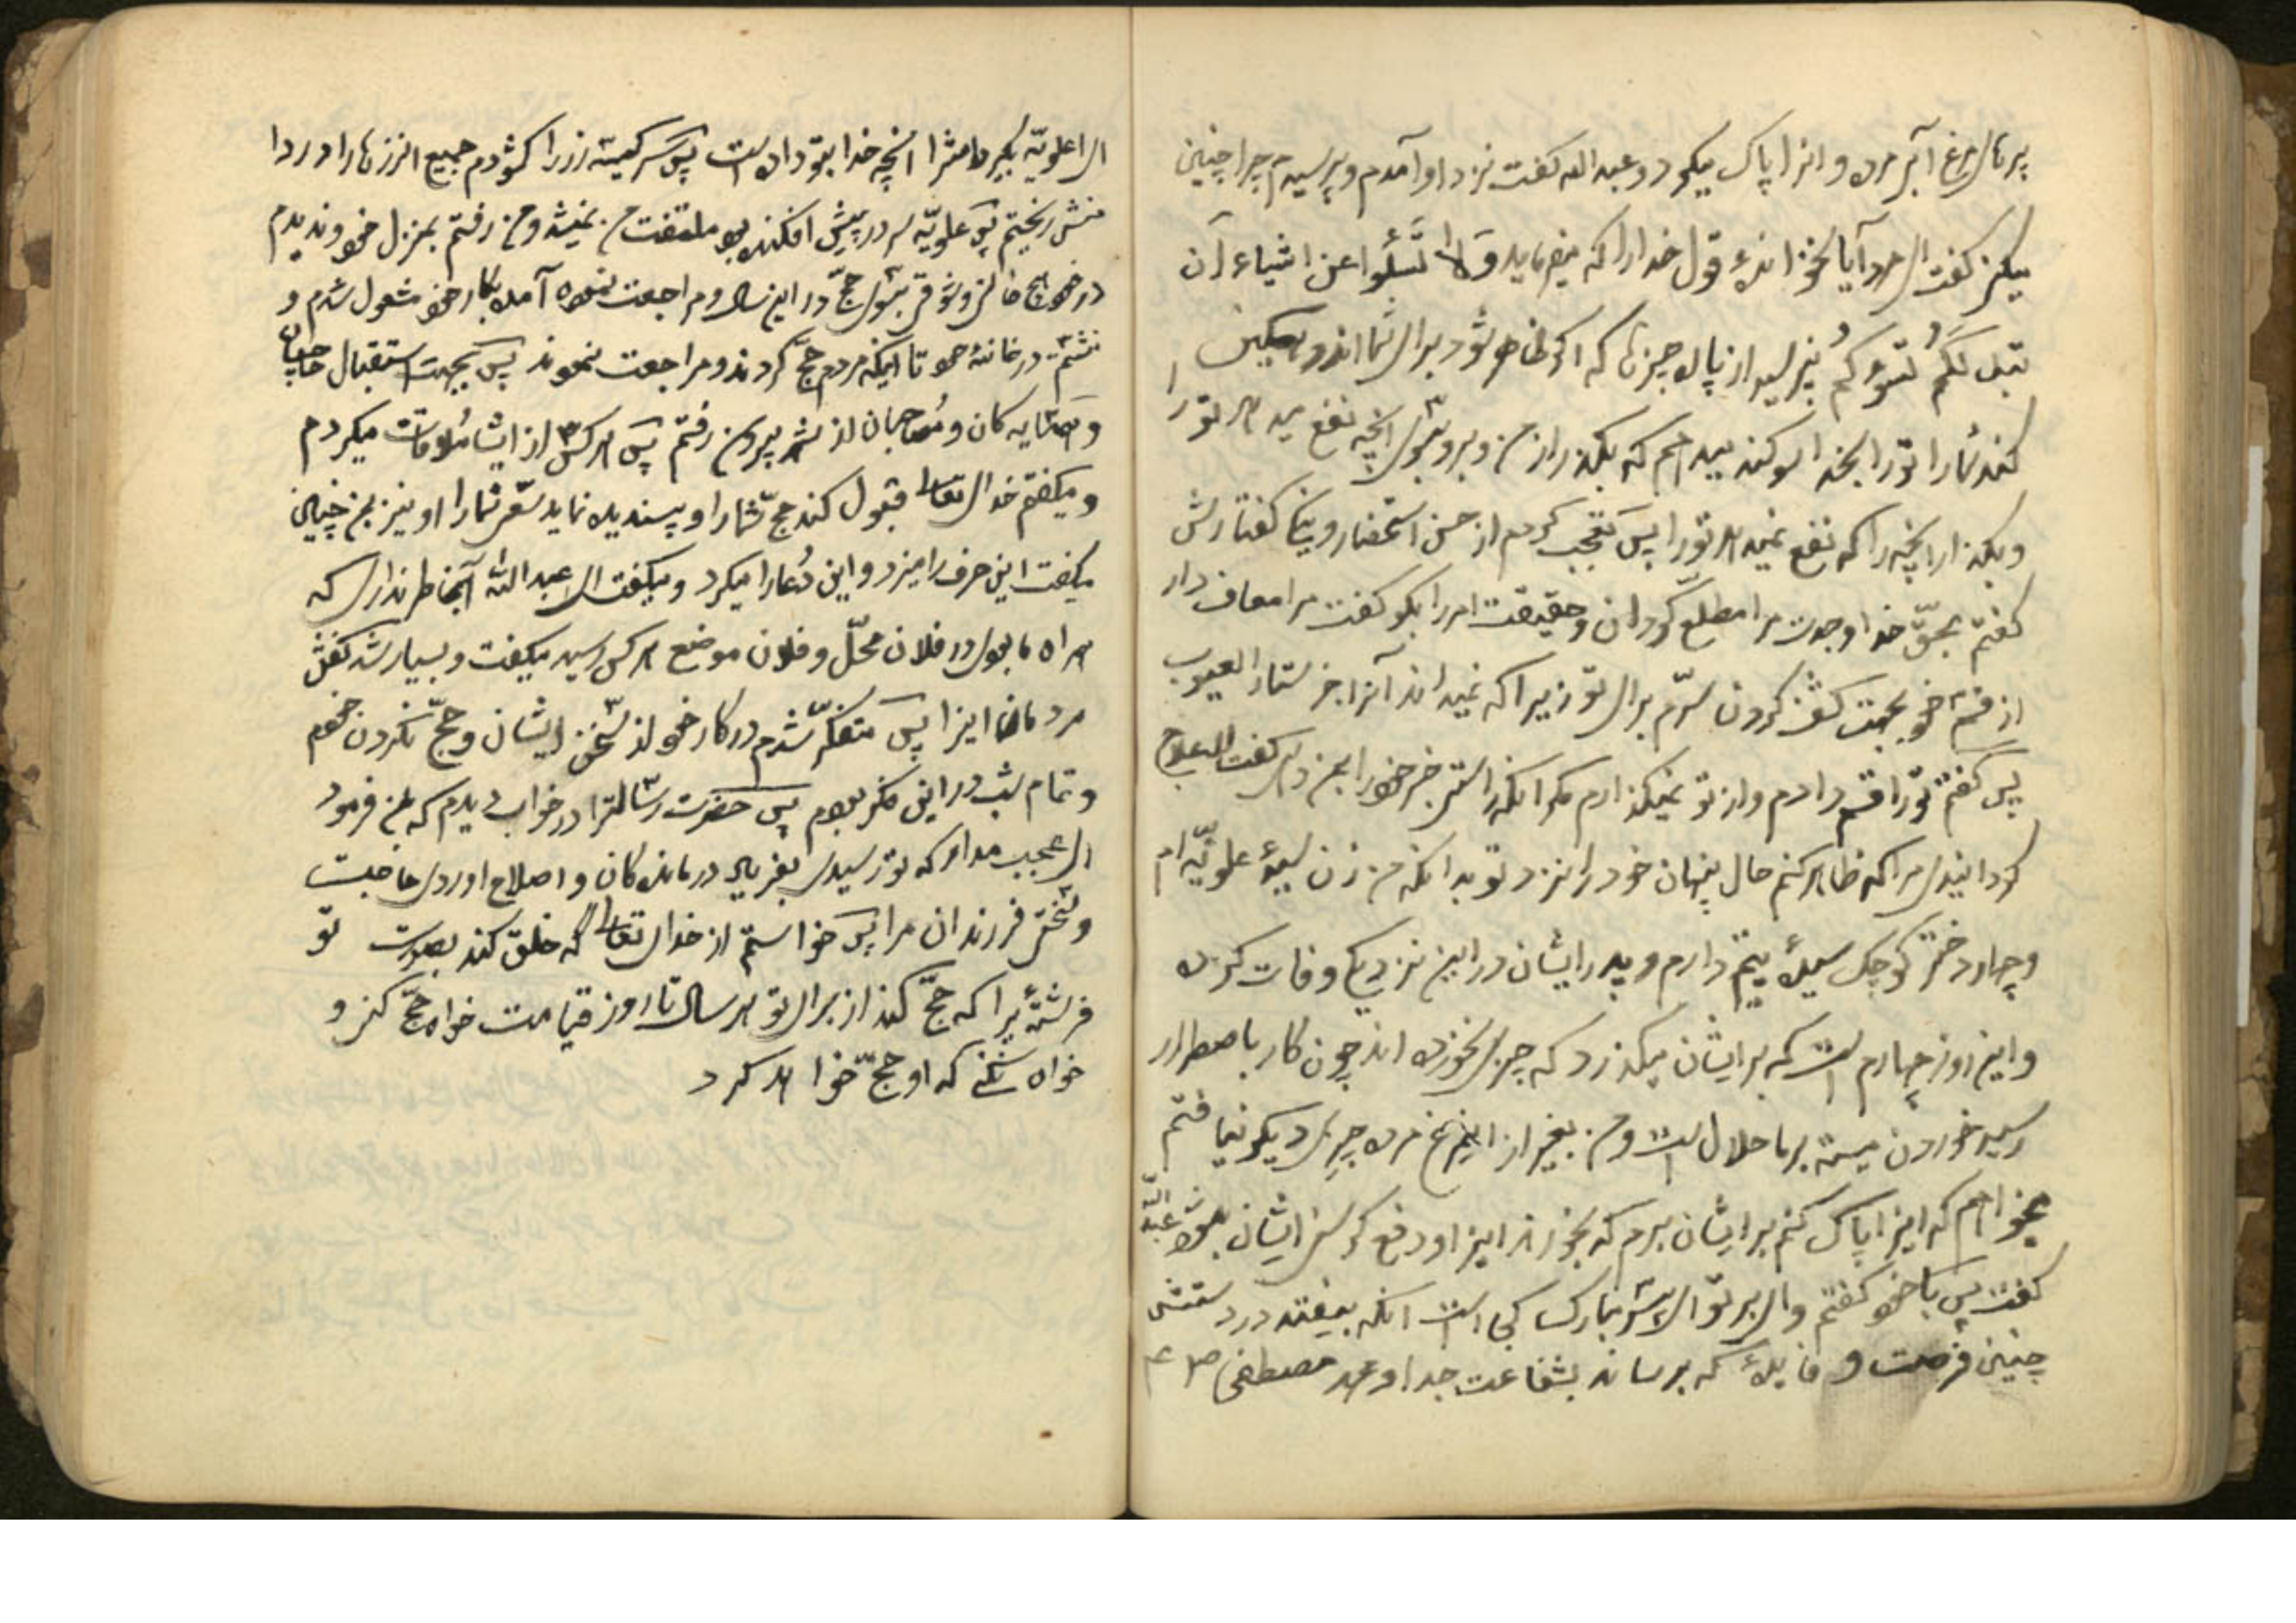 پرهای مرغ آبی مرده و انرا پاک میکرد و عبد الله کفت نزد او آمدم و پرسیدم چرا چنین
میکنی کفت ای مرد آیا نخوانده‌ٔ قول خدا را که میفرماید و لا تَسْئَلُوا عن اشیاء ان
تبد لکم تسؤکم نپرسید از پاره چیزها که اکر ظاهر شود برای شما اندوهکین
کند شما را تو را بخدا سوکند میدهم که بکذر از من و برو بسوی آنچه نفع میدهد تو را
و بکذار آنچه را که نفع نمیدهد تو را پس تعجب کردم از حسن استحضار و کفتارش
کفتم بحقّ خدا و جدت مرا مطلع کردان و حقیقت امر را بکو کفت مرا معاف دار
از قسم خود بجهت کشف کردن سرّم برای تو زیرا که نمیداند آنرا جز ستار العیوب
پس کفتم تو را قسم دادم و از تو نمیکذرم مکر انکه راستی خبر خود را بمن دهی کفت
کردانیدی مرا که ظاهر کنم حال پنهان خود را نزد تو بدانکه من زن سیدهٔ علویّه‌ام
و چهار دختر کوچک سیدهٔ یتیم دارم و پدر ایشان در این نزدیکی وفات کرده
و این روز چهارم است که بر ایشان میکذرد که چیزی نخورده اند چون کار باضطرار
رسید خوردن میته بر ما حلال است و من بغیر از این مرغ مرده چیزی دیکر نیافتم
میخواهم که اینرا پاک کنم بر ایشان برم که بخورند اینرا و رفع کرسنکی ایشان بشود عبد الله
کفت پس با خود کفتم وای بر تو ای پسر مبارک کی است انکه بیفتد در دستش
چنین فرصت و فایدهٔ که برساند بشفاعت جد او محمد مصطفی ص ع
ای علویّه بکیر دامنت را انچه خدا بتو داده است پس سر کیسه زر را کشودم جمیع انزرها را در دا
منش ریختم پس علویّه سر در پیش افکنده بود ملتفت من نمیشد و من رفتم بمنزل خود و ندیدم
در خود هیچ خواهش و شوقی بسوی حجّ در این سال و مراجعت نموده آمدم بکار خود مشغول شدم و
نشستم در خانهٔ خود تا اینکه مردم حجّ کردند و مراجعت نمودند پس بجهت استقبال حاجیان
و همسایه کان و مُصاحبان از شهر بیرون رفتم پس هر کس از ایشان ملاقات میکردم
و میکفتم خدای تعالی قبول کند حجّ شما را و پسندیده نماید سعی شما را او نیز بمن چنین
میکفت این حرف را میزد و این دُعا را میکرد و میکفت ای عبد الله آیا بخاطر نداری که
همراه ما بودی در فلان محلّ و فلان موضع هر کس رسید میکفت و بسیار شد کفتن
مردمان اینرا پس متفکّر شدم در کار خود از سخن ایشان و حجّ نکردن خودم
و تمام شب در این فکر بودم پس حضرت رسالترا در خواب دیدم که بمن فرمود
ای عجب مدار که تو رسیدی بفریاد درمانده کان و اصلاح اوردی حاجت
دختر فرزندان مرا پس خواستم از خدای تعالی که خلق کند بصورت تو
فرشتهٔ را که حجّ کند از برای تو هر سال تا روز قیامت خواه حجّ کنی و
خواه نکنی که او حجّ خواهد کرد